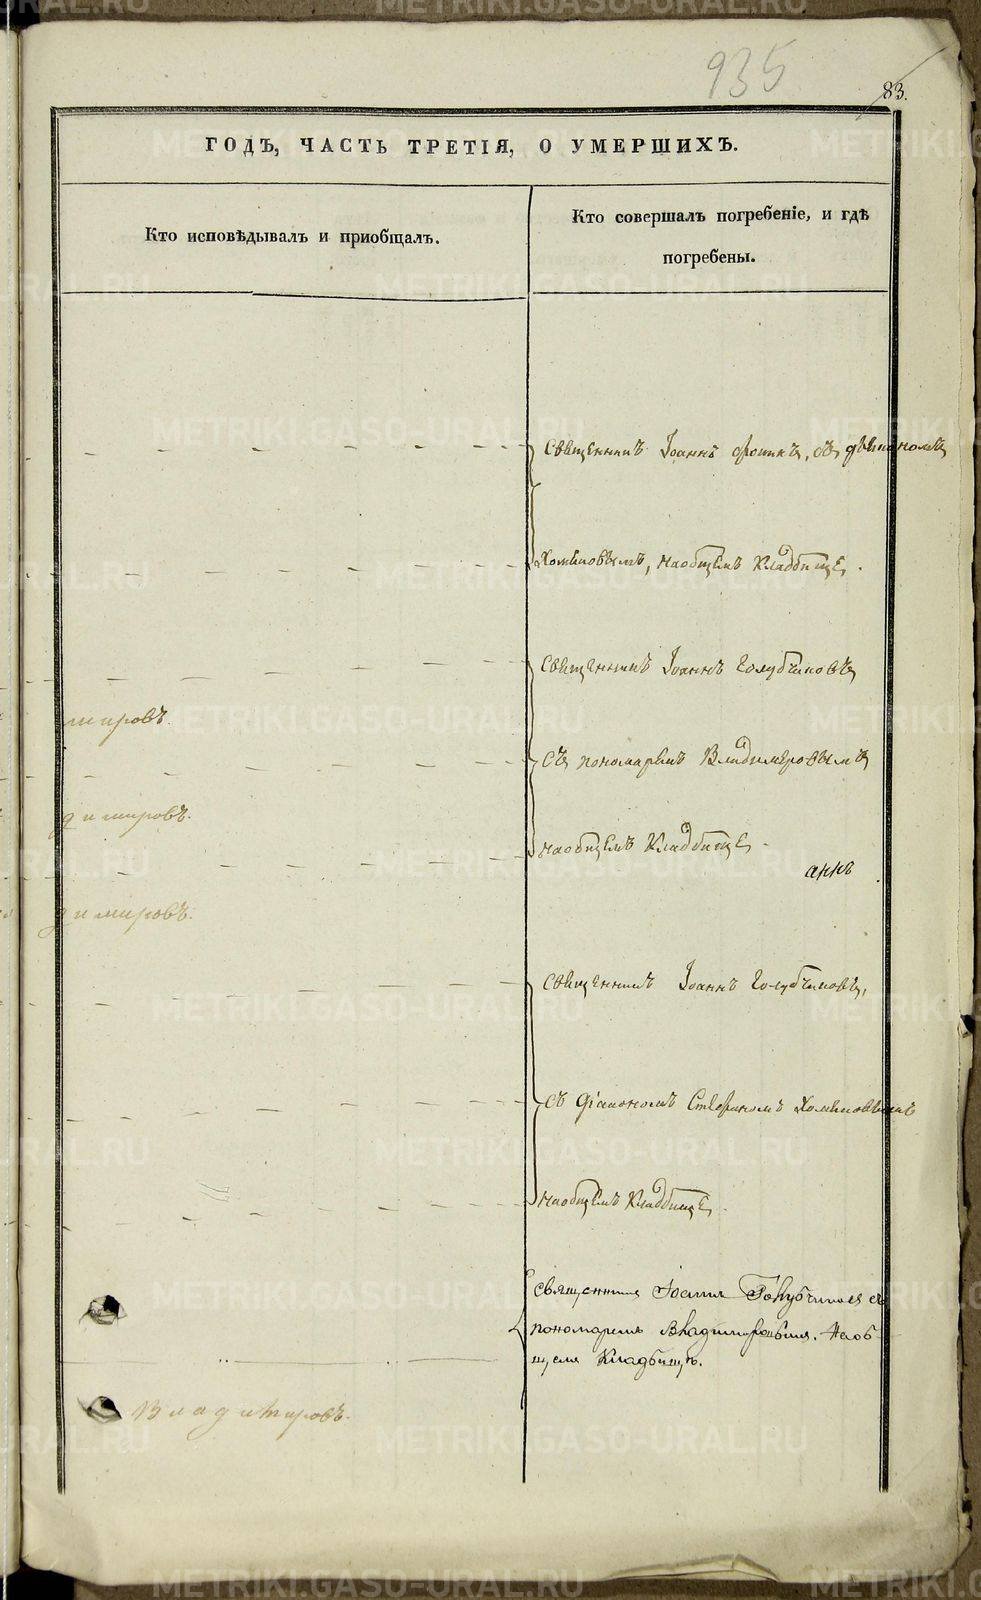 935
83.
ГОДЪ, ЧАСТЬ ТРЕТІЯ, О УМЕРШИХЪ.
Кто исповѣдывалъ и пріобщалъ.
Кто совершалъ погребеніе, и гдѣ
погребены.
Священникъ Іоаннъ съ діакономъ
Хомяковымъ, на общемъ кладбище.
Священникъ Іоаннъ Голубчиковъ
мировъ.
съ пономаремъ Владимеровымъ
димировъ.
на общемъ кладбище.
аннъ
димировъ.
Священникъ Іоаннъ Голубчиковъ,
съ діакономъ Стефаномъ Хомяковымъ
на общемъ кладбище.
Священникъ Іоаннъ Голубчиковъ съ
пономаремъ Владимировымъ. На об-
щемъ кладбищѣ.
Владимировъ.
METRIKI.GASO-URAL.RU